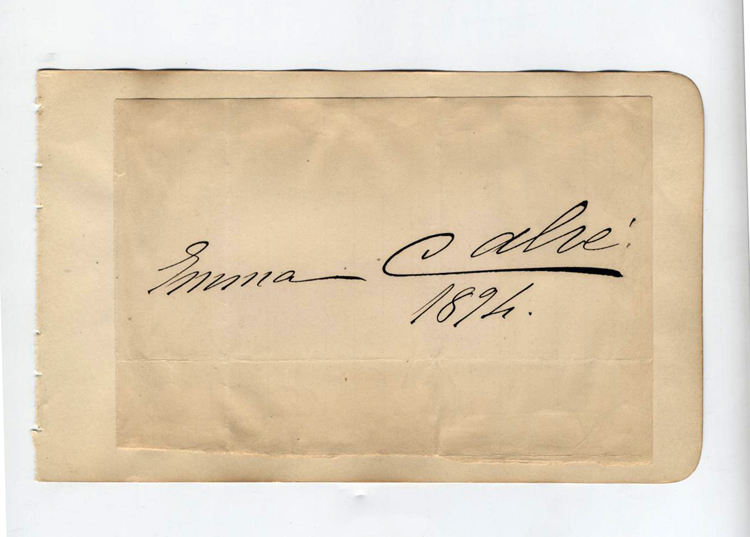 Emma Calvé.
1894.